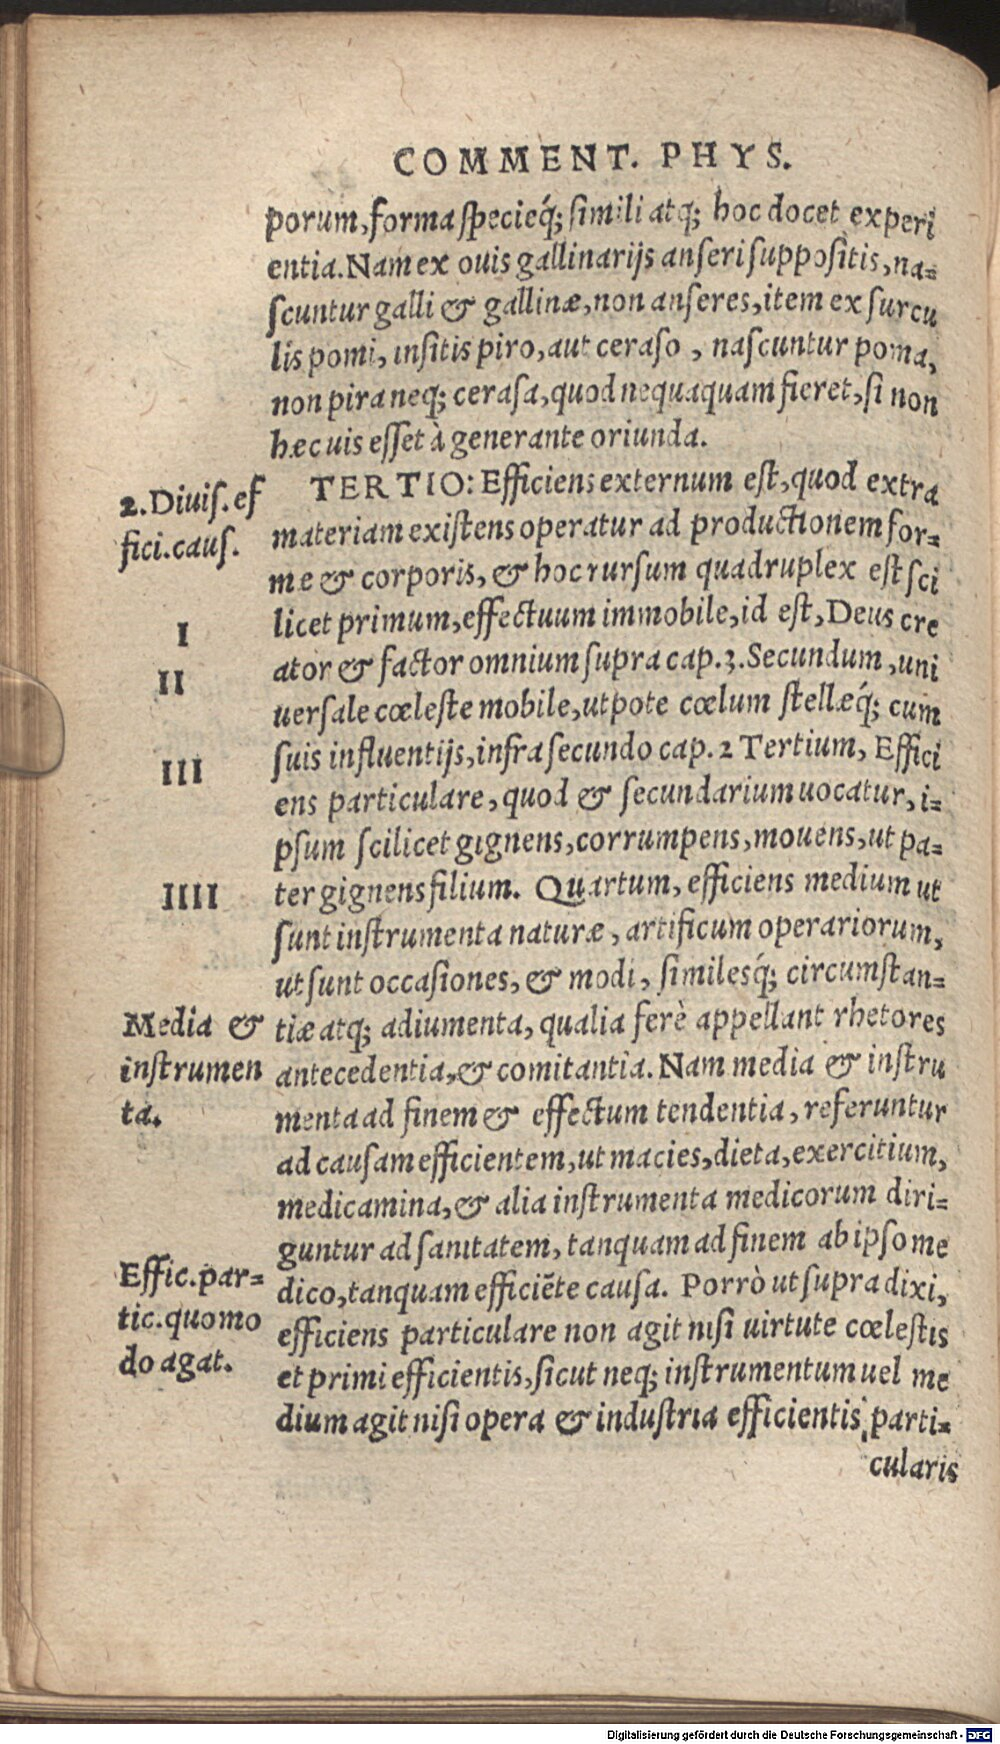 COMMENT. PHYS.
porum, forma specieq́; simili atq; hoc docet experi
entia. Nam ex ouis gallinarijs anseri suppositis, na-
scuntur galli & gallinæ, non anseres, item ex surcu
lis pomi, insitis piro, aut ceraso , nascuntur poma,
non pira neq; cerasa, quod nequaquam fieret, si non
hæc uis esset à generante oriunda.
2. Diuis. ef
fici. caus.
TERTIO: Efficiens externum est, quod extra
materiam existens operatur ad productionem for-
me & corporis, & hoc rursum quadruplex est sci
licet primum, effectuum immobile, id est, Deus cre
I
ator & factor omnium supra cap. 3. Secundum , uni
II
uersale cœleste mobile, utpote cœlum stellæq́; cum
suis influentijs, infra secundo cap. 2 Tertium, Effici
III
ens particulare, quod & secundarium uocatur, i-
psum scilicet gignens, corrumpens, mouens, ut pa-
ter gignens filium. Quartum, efficiens medium ut
IIII
sunt instrumenta naturæ , artificum operariorum,
ut sunt occasiones, & modi, similesq́; circumstan-
tiæ atq; adiumenta, qualia ferè appellant rhetores
Media &
instrumen
ta.
antecedentia, & comitantia. Nam media & instru
menta ad finem & effectum tendentia, referuntur
ad causam efficientem, ut macies, dieta, exercitium,
medicamina, & alia instrumenta medicorum diri-
guntur ad sanitatem, tanquam ad finem ab ipso me
dico, tanquam efficiẽte causa. Porrò ut supra dixi,
Effic. par-
tic. quomo
do agat.
efficiens particulare non agit nisi uirtute cœlestis
et primi efficientis, sicut neq; instrumentum uel me
dium agit nisi opera & industria efficientis parti-
cularis
Digitalisierung gefördert durch die Deutsche Forschungsgemeinschaft - DFG